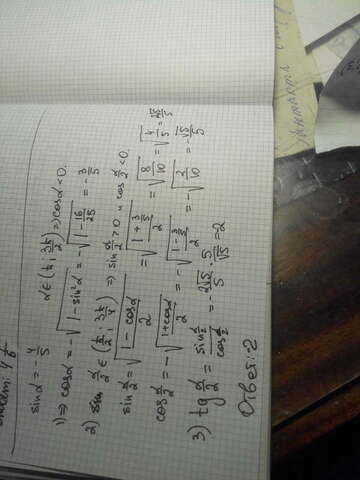 sinα = -4/5 α∈(π; 3π/2) ⇒ cosα < 0.
1) ⇒ cosα = -√(1 - sin²α) = -√(1 - 16/25) = -3/5
2) α/2 ∈ (π/2; 3π/4) ⇒ sin α/2 > 0 и cos α/2 < 0.
sin α/2 = √((1 - cosα)/2) = √((1 + 3/5)/2) = √(8/10) = √(4/5) = 2√5/5
cos α/2 = -√((1 + cosα)/2) = -√((1 - 3/5)/2) = -√(2/10) = -√5/5
3) tg α/2 = (sin α/2)/(cos α/2) = -2√5/5 · 5/√5 = -2
Ответ: -2